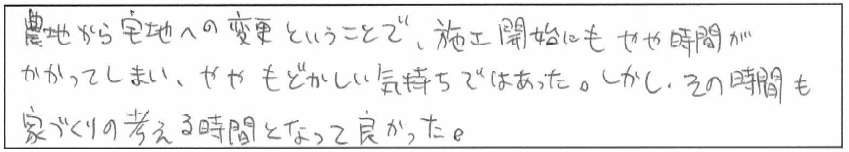 農地から宅地への変更ということで、施工開始にもやや時間が
かかってしまい、ややもどかしい気持ちではあった。しかし、その時間も
家づくりの考える時間となって良かった。